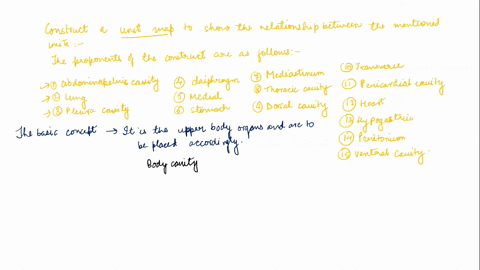 Construct a unit map to show the relationship between the mentioned
units :-
The proponents of the construct are as follows :-
→ ① abdominopelvic cavity
→ ② Lung
→ ③ Pleura cavity
④ diaphragm
⑤ Medial
⑥ Stomach
⑦ Mediastinum
⑧ Thoracic cavity
⑨ Dorsal cavity
⑩ Transverse
⑪ Pericardial cavity
⑫ Heart
⑬ Hypogastric
⑭ Peritonium
⑮ Ventral cavity.
The basic concept → It is the upper body organs and are to
be placed accordingly.
Body cavity